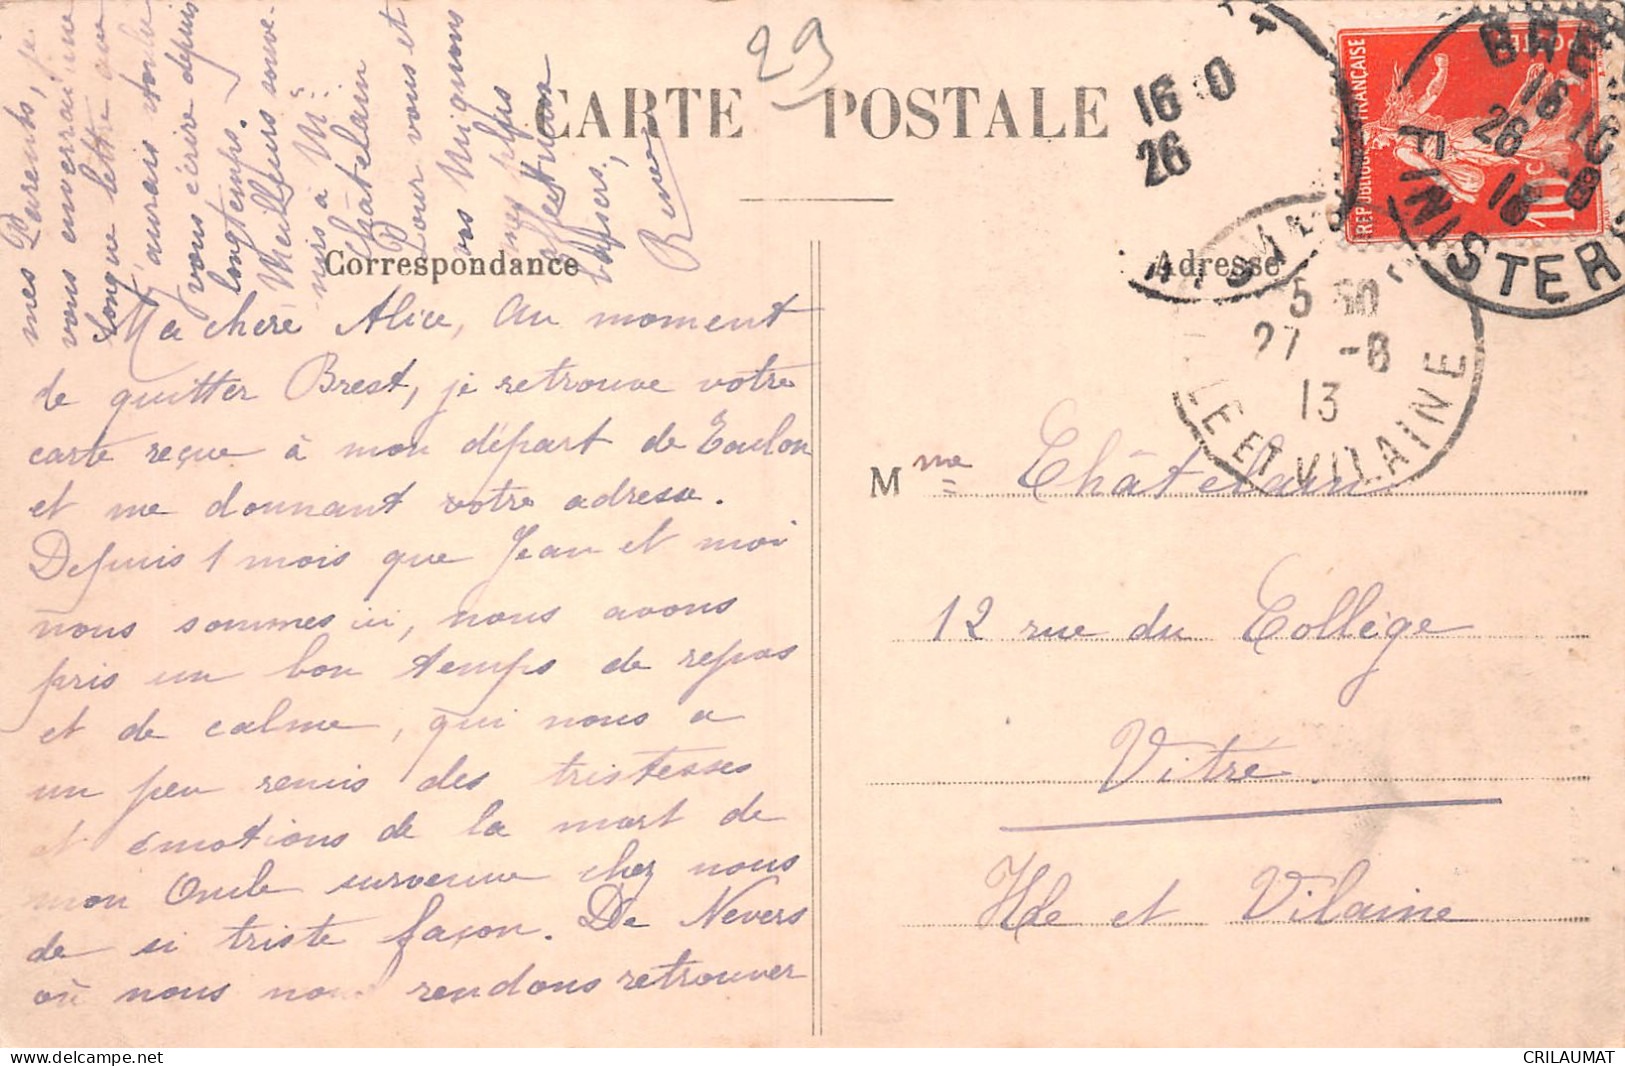 29
CARTE POSTALE
Correspondance
Adresse
16 10
26
BRE
16 10
26 8
FINISTERE
REPUBLIQUE FRANÇAISE
POSTE
10c
5 50
27 -8
13
ILLE ET VILAINE
Ma chère Alice, au moment
de quitter Brest, je retrouve votre
carte reçue à mon départ de Toulon
et me donnant votre adresse.
Depuis 1 mois que Jean et moi
nous sommes ici, nous avons
pris un bon temps de repos
et de calme, qui nous a
un peu remis des tristesses
et émotions de la mort de
mon Oncle survenue chez nous
de si triste façon. De Nevers
où nous nous rendons retrouver
mes Parents, je
vous enverrai une
longue lettre car
j'aurais voulu
vous écrire depuis
longtemps.
Meilleurs souve-
nirs à Mr
Châtelain
Pour vous et
vos Mignons
mes plus
affectueux
baisers,
Mme Châtelain
12 rue du Collège
Vitré
Ille et Vilaine
CRILAUMAT